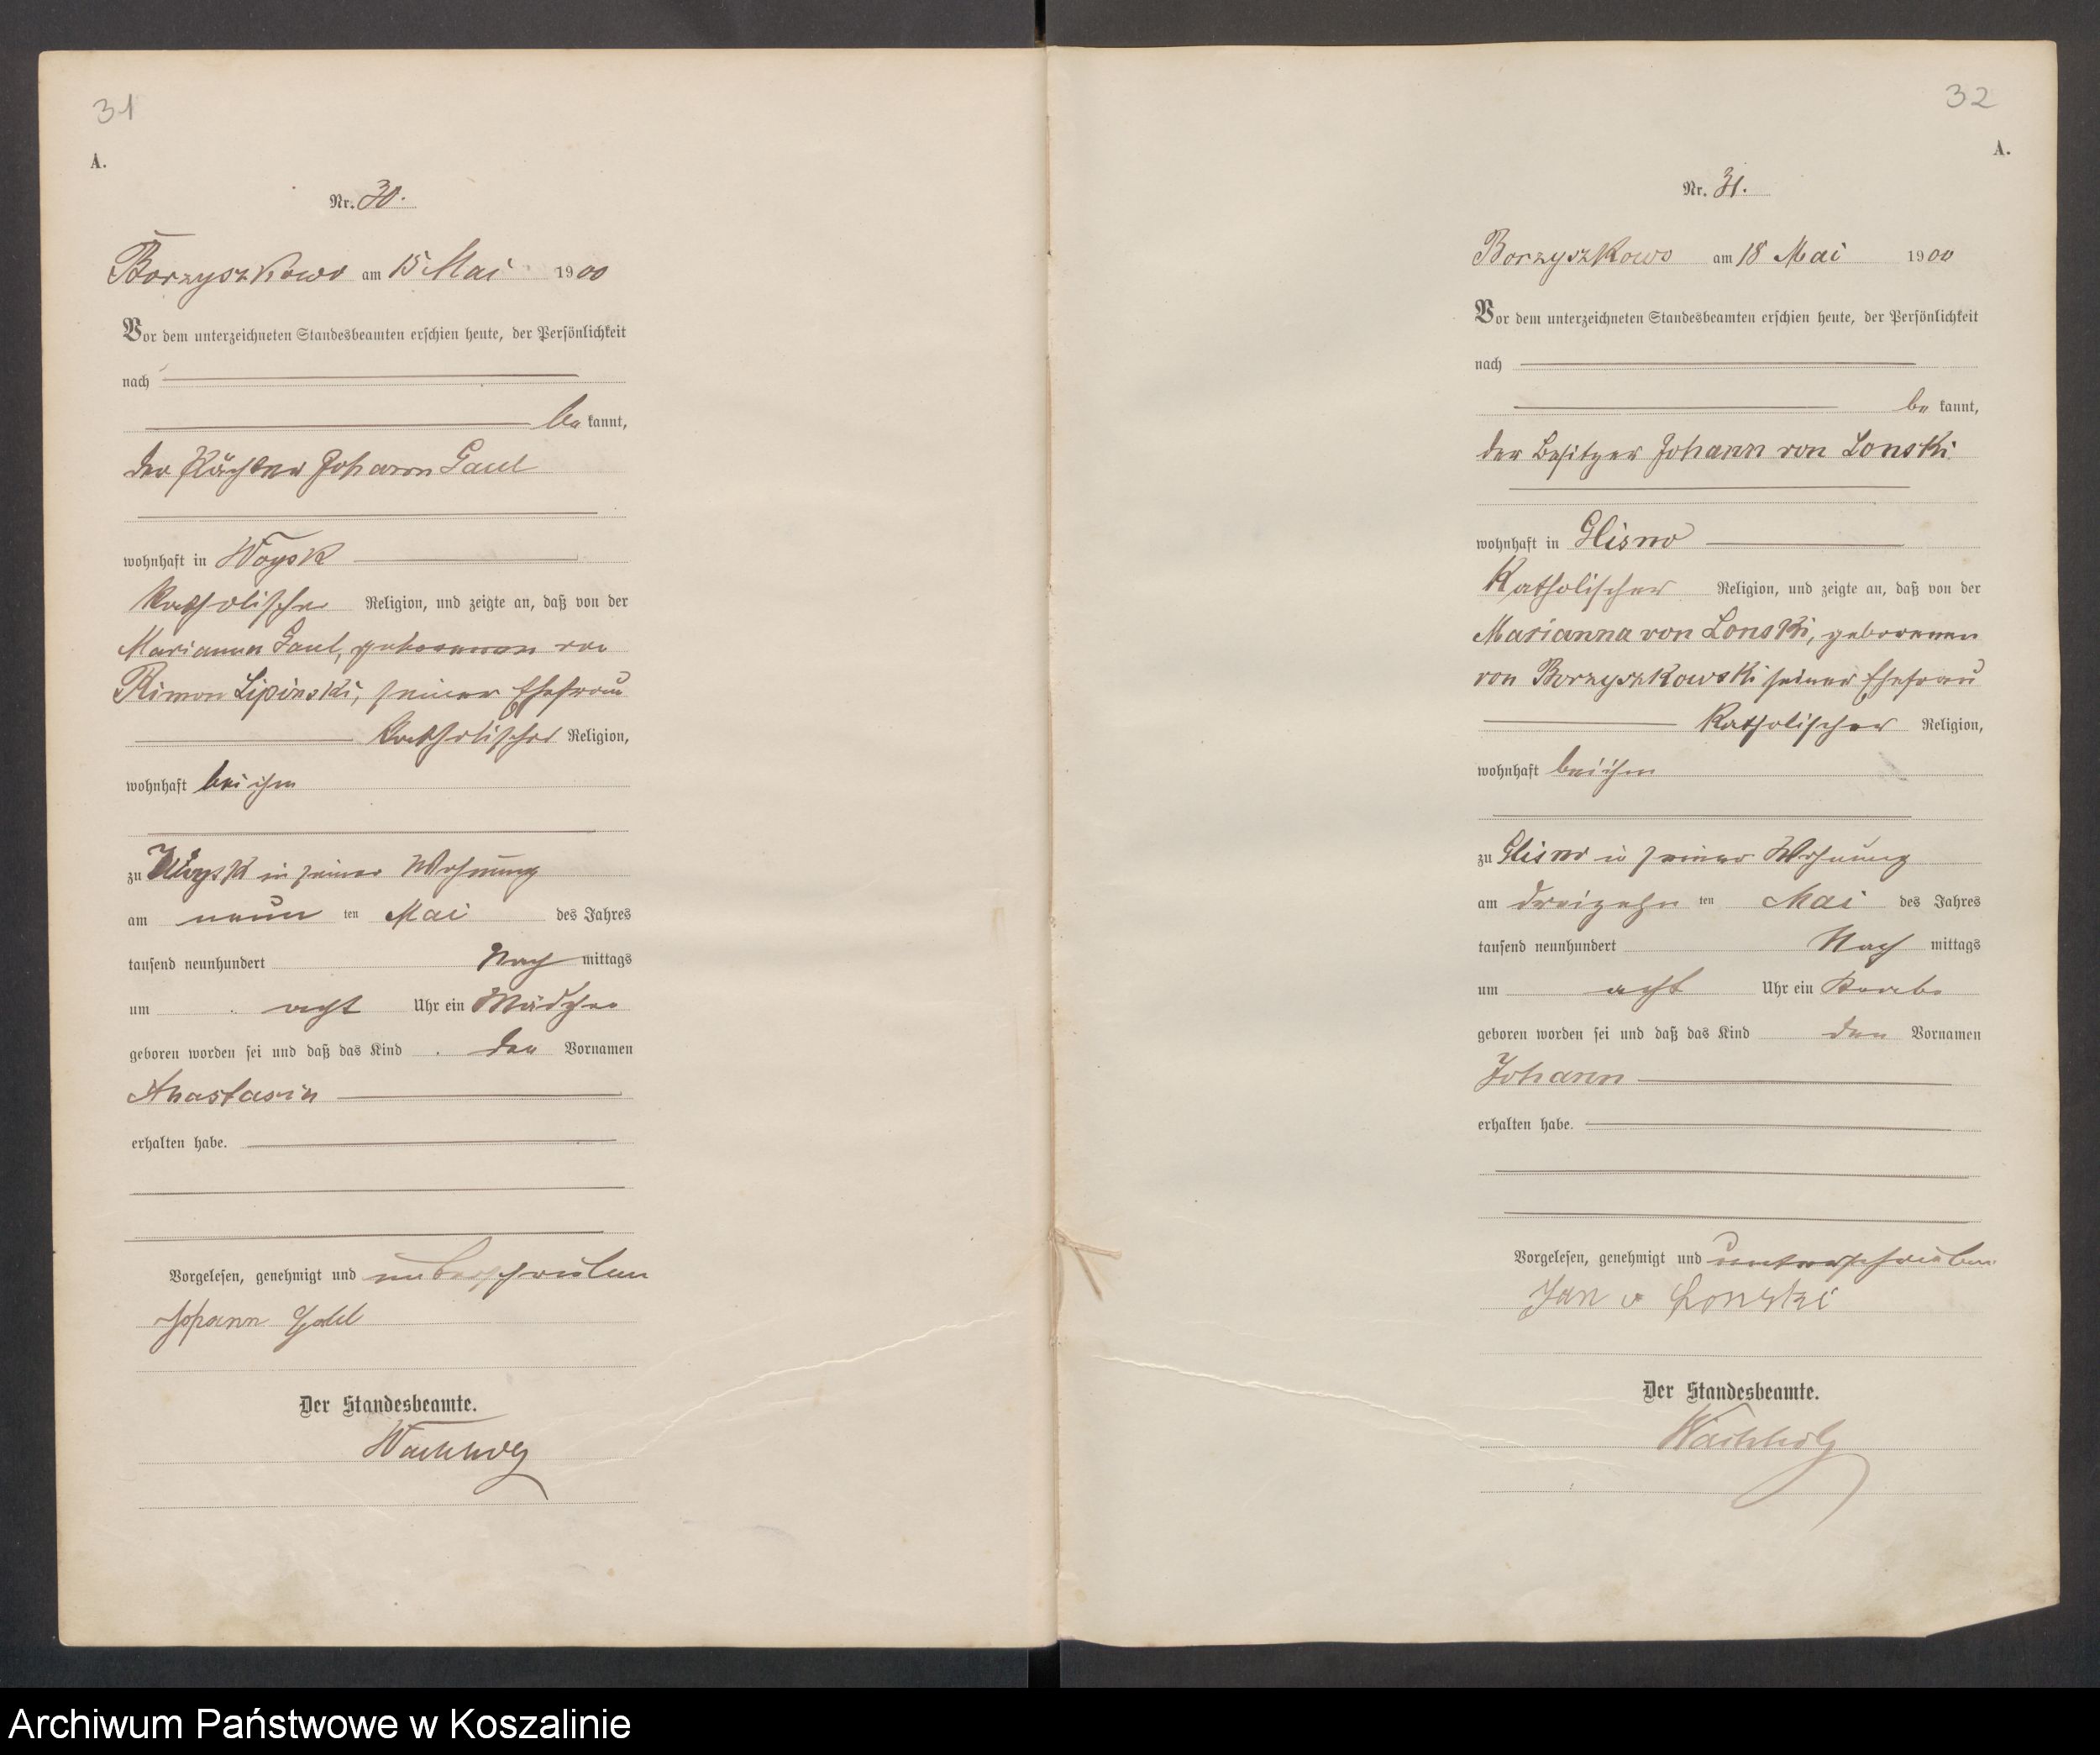 31
A.
Nr. 30.
Borzyszkowo am 15 Mai 1900
Vor dem unterzeichneten Standesbeamten erschien heute, der Persönlichkeit
nach
be kannt,
der Pächter Johann Gaul
wohnhaft in Woysk
katholischer Religion, und zeigte an, daß von der
Marianna Gaul, geborenen von
Rimon Lipinski, seiner Ehefrau
katholischer Religion,
wohnhaft bei ihm
zu Woysk in seiner Wohnung
am neun ten Mai des Jahres
tausend neunhundert Nach mittags
um acht Uhr ein Mädchen
geboren worden sei und daß das Kind den Vornamen
Anastasia
erhalten habe.
Vorgelesen, genehmigt und unterschrieben
Johann
Der Standesbeamte.
Wachholz
32
A.
Nr. 31.
Borzyszkowo am 18 Mai 1900
Vor dem unterzeichneten Standesbeamten erschien heute, der Persönlichkeit
nach
be kannt,
der Besitzer Johann von Lonski
wohnhaft in Glisno
Katholischer Religion, und zeigte an, daß von der
Marianna von Lonski, geborenen
von Borzyszkowski seiner Ehefrau
Katholischer Religion,
wohnhaft bei ihm
zu Glisno in seiner Wohnung
am dreizehn ten Mai des Jahres
tausend neunhundert Nach mittags
um acht Uhr ein Knabe
geboren worden sei und daß das Kind den Vornamen
Johann
erhalten habe.
Vorgelesen, genehmigt und unterschrieben
Jan v Lonski
Der Standesbeamte.
Wachholz
Archiwum Państwowe w Koszalinie